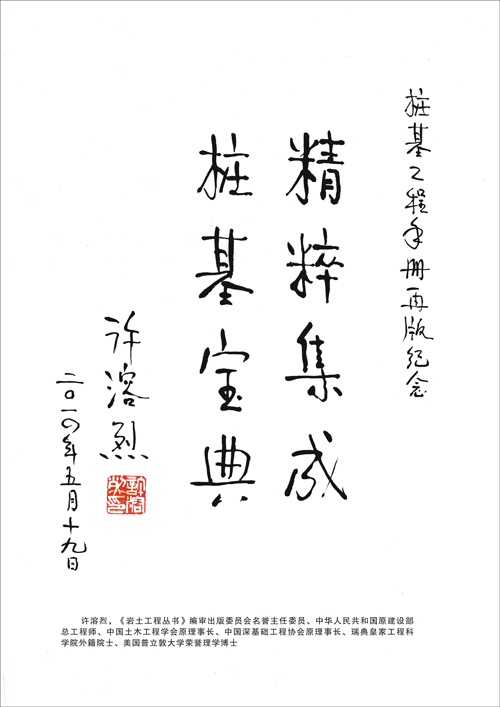 桩基工程手册再版纪念
精粹集成
桩基宝典
许溶烈
二〇一〇年五月十九日
许溶烈，《岩土工程丛书》编审出版委员会名誉主任委员、中华人民共和国原建设部
总工程师、中国土木工程学会原理事长、中国深基础工程协会原理事长、瑞典皇家工程科
学院外籍院士、美国普立敦大学荣誉理学博士